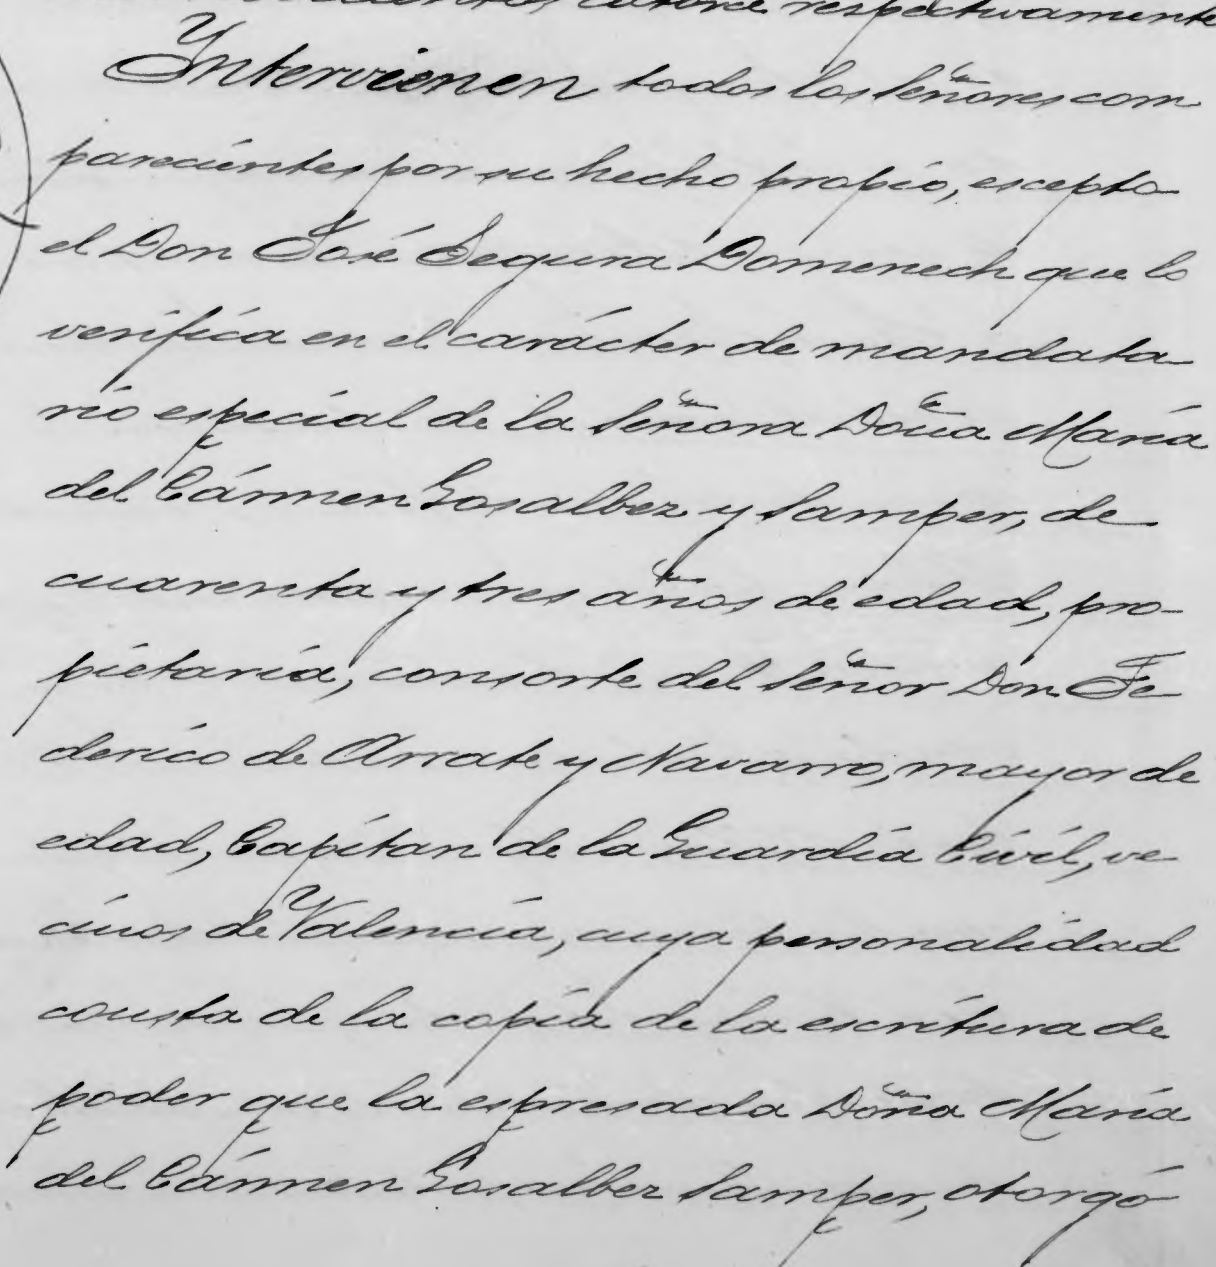 catorce respectivamente
Intervienen todos los Señores com
parecientes por su hecho propio, escepto
el Don José Segura Domenech que lo
verifica en el carácter de mandata
rio especial de la Señora Doña María
del Cármen Gosalbez y Samper, de
cuarenta y tres años de edad, pro-
pietaria, consorte del Señor Don Fe
derico de Arrate y Navarro, mayor de
edad, Capitan de la Guardia Civil, ve
cinos de Valencia, cuya personalidad
consta de la copia de la escritura de
poder que la espresada Doña María
del Cármen Gosalbez Samper, otorgó